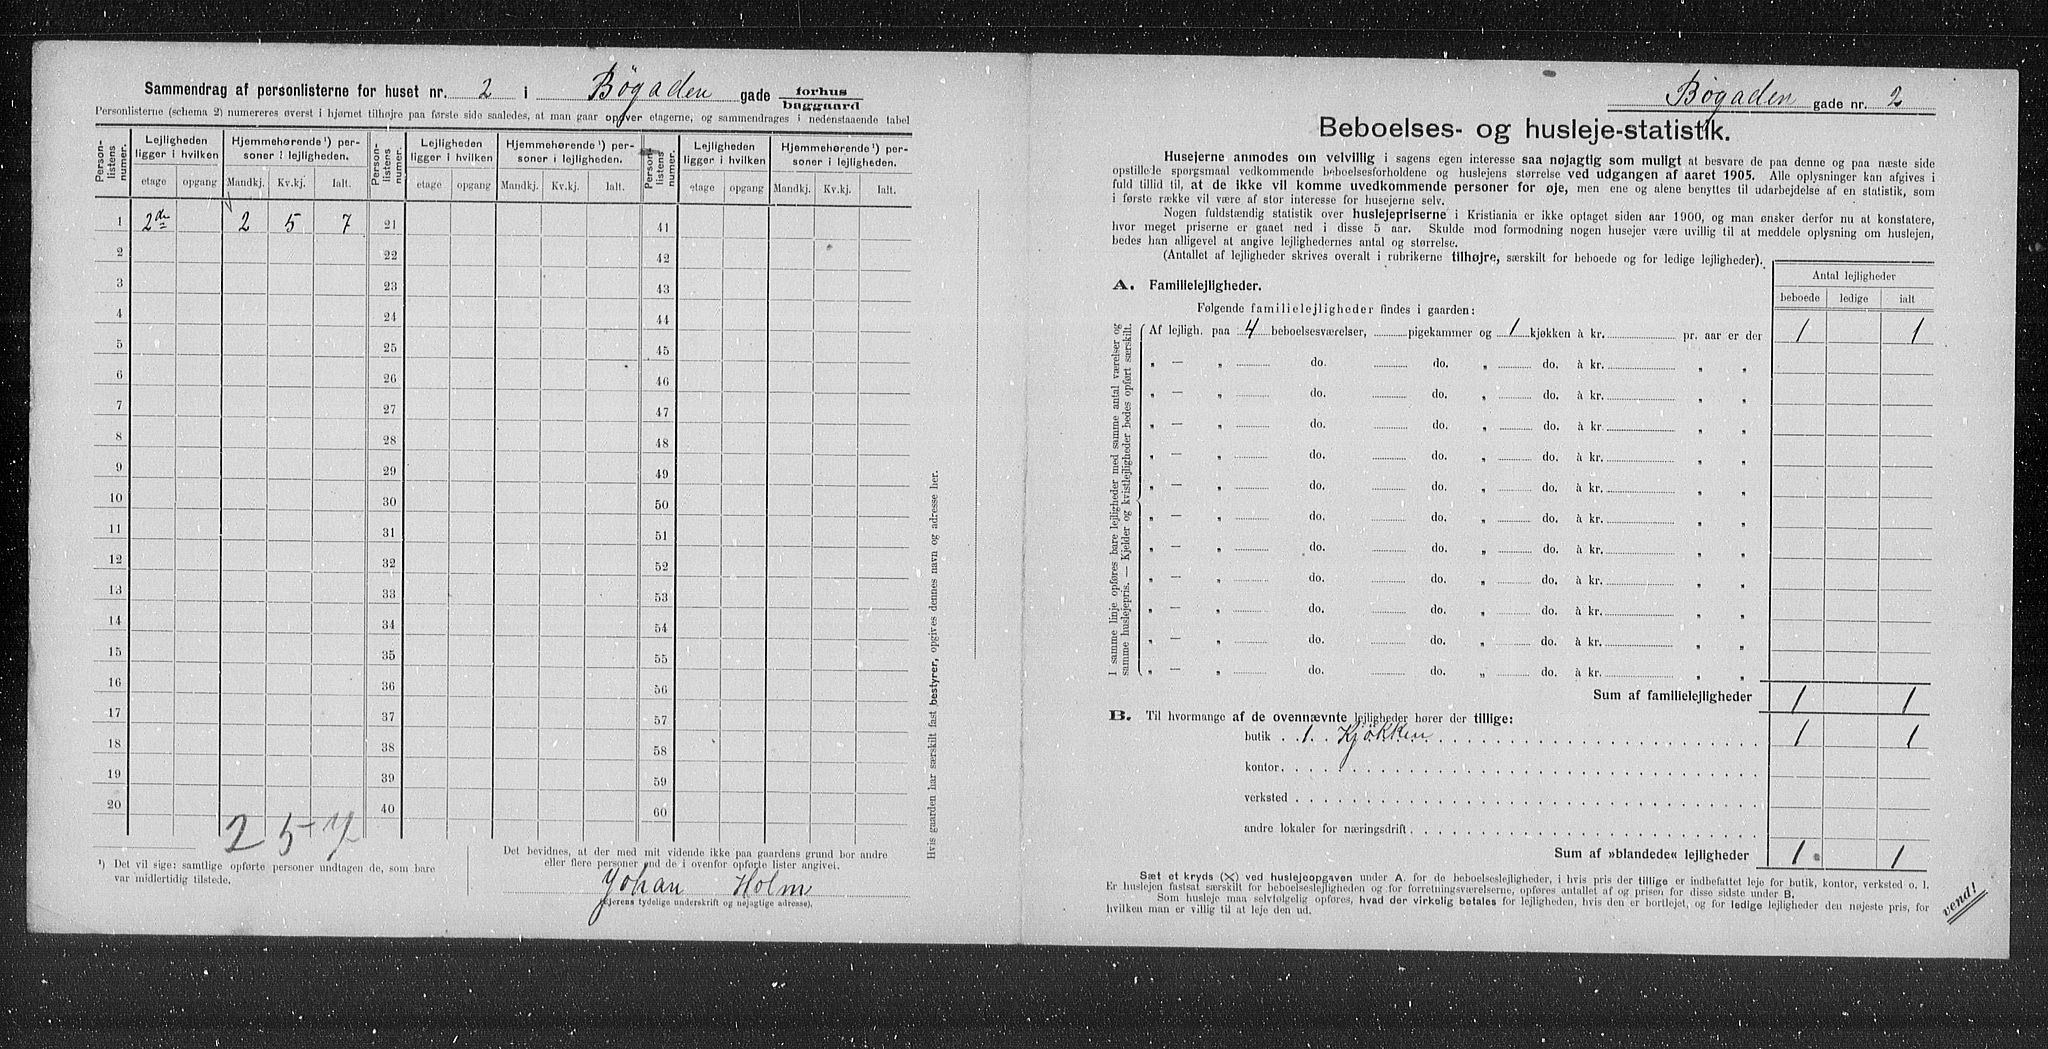 Sammendrag af personlisterne for huset nr. 2 i Bøgaden gade forhus baggaard
Personlisterne (schema 2) numereres øverst i hjørnet tilhøjre paa første side saaledes, at man gaar opover etagerne, og sammendrages i nedenstaaende tabel
Person-listens numer. Lejligheden ligger i hvilken Hjemmehørende ¹) personer i lejligheden. Person-listens numer. Lejligheden ligger i hvilken Hjemmehørende ¹) personer i lejligheden. Person-listens numer. Lejligheden ligger i hvilken Hjemmehørende ¹) personer i lejligheden.
etage opgang Mandkj. Kv.kj. Ialt. etage opgang Mandkj. Kv.kj. Ialt. etage opgang Mandkj. Kv.kj. Ialt.
1 2de 2 5 7 21 41
2 22 42
3 23 43
4 24 44
5 25 45
6 26 46
7 27 47
8 28 48
9 29 49
10 30 50
11 31 51
12 32 52
13 33 53
14 34 54
15 35 55
16 36 56
17 37 57
18 38 58
19 39 59
20 40 60
2 5 7
¹) Det vil sige: samtlige opførte personer undtagen de, som bare
var midlertidig tilstede.
Det bevidnes, at der med mit vidende ikke paa gaardens grund bor andre
eller flere personer end de i ovenfor opførte lister angivei.
Johan Holm
(Ejerens tydelige underskrift og nøjagtige adresse).
Hvis gaarden har særskilt fast bestyrer, opgives dennes navn og adresse her.
Bøgaden gade nr. 2
Beboelses- og husleje-statistik.
Husejerne anmodes om velvillig i sagens egen interesse saa nøjagtig som muligt at besvare de paa denne og paa næste side
opstillede spørgsmaal vedkommende beboelsesforholdene og huslejens størrelse ved udgangen af aaret 1905. Alle oplysninger kan afgives i
fuld tillid til, at de ikke vil komme uvedkommende personer for øje, men ene og alene benyttes til udarbejdelse af en statistik, som
i første række vil være af stor interesse for husejerne selv.
Nogen fuldstændig statistik over huslejepriserne i Kristiania er ikke optaget siden aar 1900, og man ønsker derfor nu at konstatere,
hvor meget priserne er gaaet ned i disse 5 aar. Skulde mod formodning nogen husejer være uvillig til at meddele oplysning om huslejen,
bedes han alligevel at angive lejlighedernes antal og størrelse.
(Antallet af lejligheder skrives overalt i rubrikerne tilhøjre, særskilt for beboede og for ledige lejligheder).
Antal lejligheder
beboede ledige ialt
A. Familielejligheder.
Følgende familielejligheder findes i gaarden:
I samme linje opføres bare lejligheder med samme antal værelser og
samme huslejepris. — Kjelder og kvistlejligheder bedes opført særskilt.
Af lejligh. paa 4 beboelsesværelser, pigekammer og 1 kjøkken à kr. pr. aar er der 1 1
„ — „ do. do. „ do. à kr. „ „
„ — „ do. do. „ do. à kr. „ „
„ — „ do. do. „ do. à kr. „ „
„ — „ do. do. „ do. à kr. „ „
„ — „ do. do. „ do. à kr. „ „
„ — „ do. do. „ do. à kr. „ „
„ — „ do. do. „ do. à kr. „ „
„ — „ do. do. „ do. à kr. „ „
„ — „ do. do. „ do. à kr. „ „
„ — „ do. do. „ do. à kr. „ „
„ — „ do. do. „ do. à kr. „ „
Sum af familielejligheder 1 1
B. Til hvormange af de ovennævnte lejligheder hører der tillige:
butik 1 Kjøkken 1 1
kontor
verksted
andre lokaler for næringsdrift
Sum af »blandede« lejligheder 1 1
Sæt et kryds (X) ved huslejeopgaven under A. for de beboelseslejligheder, i hvis pris der tillige er indbefattet leje for butik, kontor, verksted o. l.
Er huslejen fastsat særskilt for beboelseslejligheden og for forretningsværelserne, opføres antallet af og prisen for disse sidste under B.
Som husleje maa selvfølgelig opføres, hvad der virkelig betales for lejligheden, hvis den er bortlejet, og for ledige lejligheder den nøjeste pris, for
hvilken man er villig til at leje den ud.
vend!